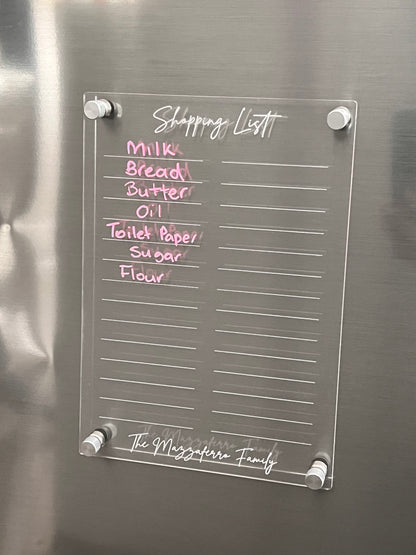 Shopping List
Milk
Bread
Butter
Oil
Toilet Paper
Sugar
Flour
The Mazzaferro Family